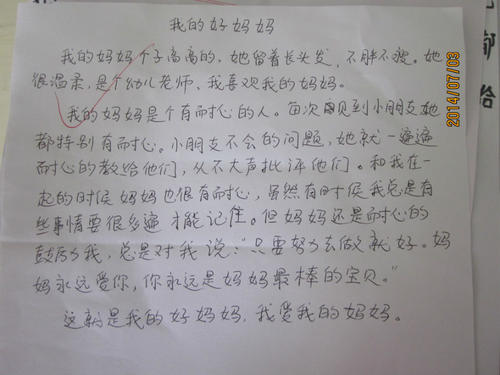 我的好妈妈
我的妈妈个子高高的，她留着长头发，不胖不瘦。她
很温柔，是个幼儿老师、我喜欢我的妈妈。
我的妈妈是个有耐心的人。每次见到小朋友她
都特别有耐心。小朋友不会的问题，她就一遍遍
耐心的教给他们，从不大声批评他们。和我在一
起的时候妈妈也很有耐心，虽然有时候我总是有
些事情要很多遍才能记住。但妈妈还是耐心的
鼓励我，总是对我说：“只要努力去做就好。妈
妈永远爱你，你永远是妈妈最棒的宝贝。”
这就是我的好妈妈，我爱我的妈妈。
2014/07/03
部
给